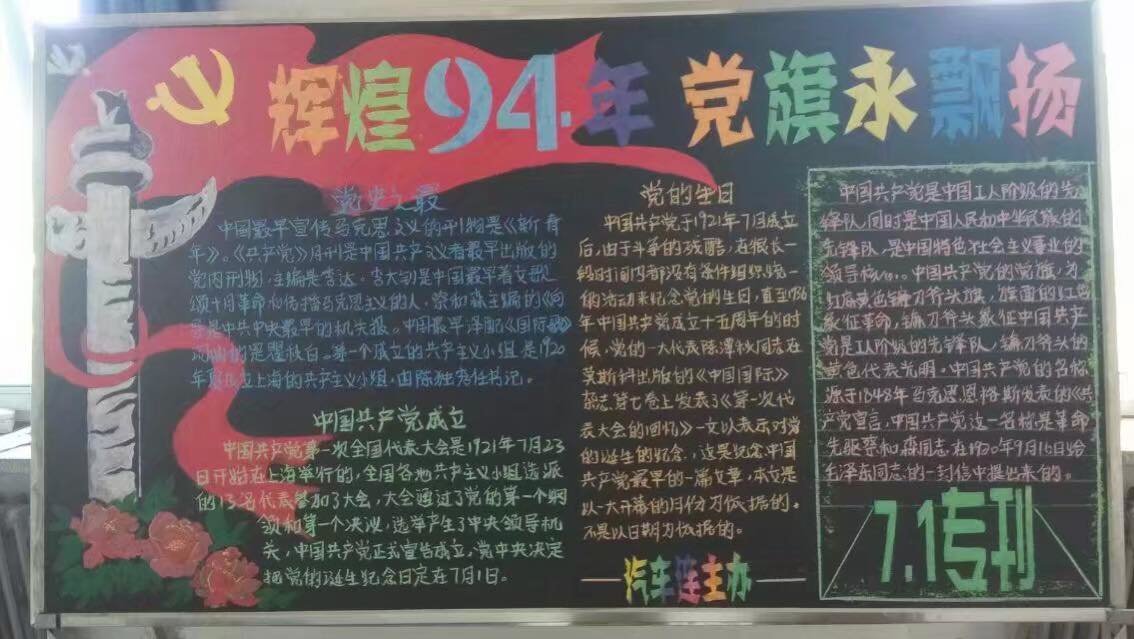 辉煌94年 党旗永飘扬
党史之最
中国最早宣传马克思主义的刊物是《新青
年》。《共产党》月刊是中国共产主义者最早出版的
党内刊物，主编是李达。李大钊是中国最早著文歌
颂十月革命和传播马克思主义的人。蔡和森主编的《向
导》是中共中央最早的机关报。中国最早译配《国际歌》
词曲的是瞿秋白。第一个成立的共产主义小组是1920
年 上海的共产主义小组，由陈独秀任书记。
中国共产党成立
中国共产党第一次全国代表大会是1921年7月23
日开始在上海举行的，全国各地共产主义小组选派
的13名代表参加了大会，大会通过了党的第一个纲
领和第一个决议，选举产生了中央领导机
关，中国共产党正式宣告成立，党中央决定
把党的诞生纪念日定在7月1日。
党的生日
中国共产党于1921年7月成立
后，由于斗争的残酷，在很长一
段时间内都没有条件组织统一
的活动来纪念党的生日，直至1936
年中国共产党成立十五周年的时
候，党的一大代表陈潭秋同志在
莫斯科出版的《中国国际》
杂志第七卷上发表了《第一次代
表大会的回忆》一文以表示对党
的诞生的纪念，这是纪念中国
共产党最早的一篇文章，本文是
以一大开幕的月份为依据的。
不是以日期为依据的。
汽车连主办
中国共产党是中国工人阶级的先
锋队，同时是中国人民和中华民族的
先锋队，是中国特色社会主义事业的
领导核心。中国共产党的党旗，为
红底黄色镰刀斧头旗，旗面的红色
象征革命，镰刀斧头象征中国共产
党是工人阶级的先锋队，镰刀斧头的
黄色代表光明。中国共产党的名称
源于1848年马克思恩格斯发表的《共
产党宣言，中国共产党这一名称是革命
先驱蔡和森同志，在1920年9月16日给
毛泽东同志的一封信中提出来的。
7.1专刊